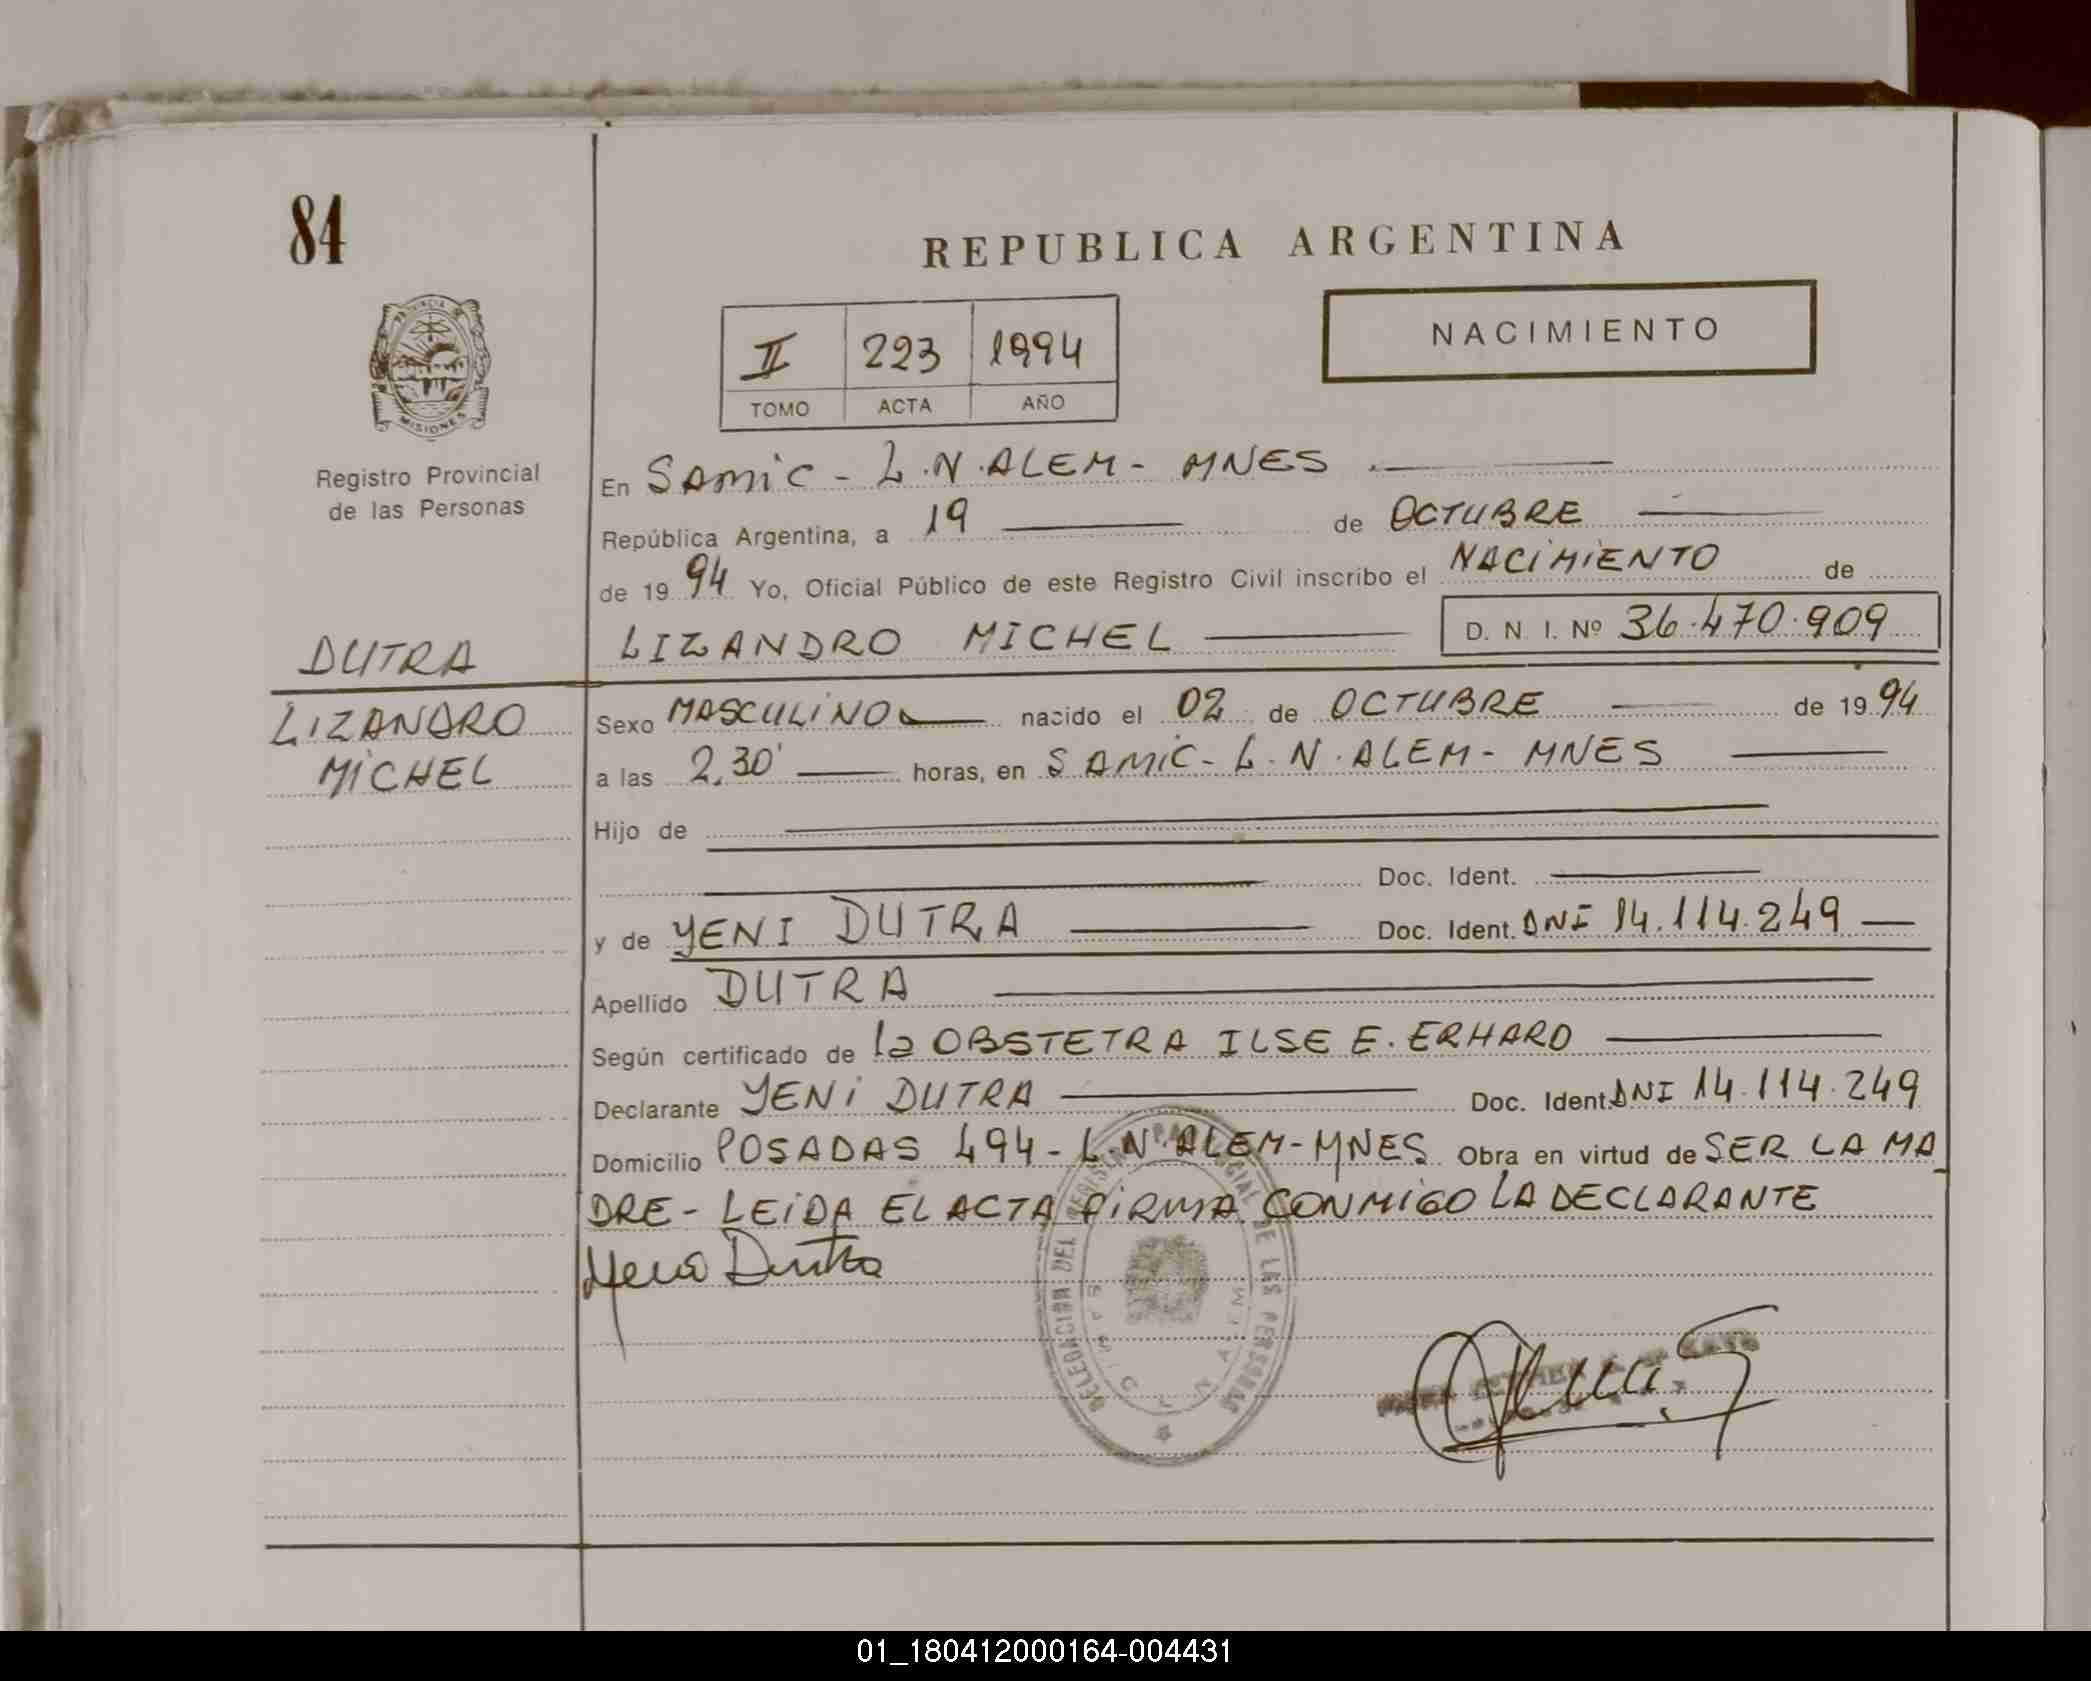 84
REPUBLICA ARGENTINA
PROVINCIA DE
MISIONES
Registro Provincial
de las Personas
II 223 1994
TOMO ACTA AÑO
NACIMIENTO
En SAMIC - L.N.ALEM - MNES
República Argentina, a 19 de OCTUBRE
de 1994 Yo, Oficial Público de este Registro Civil inscribo el NACIMIENTO de
LIZANDRO MICHEL D. N. I. Nº 36.470.909
DUTRA
LIZANDRO
MICHEL
Sexo MASCULINO nacido el 02 de OCTUBRE de 1994
a las 2,30' horas, en SAMIC - L.N.ALEM - MNES
Hijo de
Doc. Ident.
y de YENI DUTRA Doc. Ident. DNI 14.114.249
Apellido DUTRA
Según certificado de la OBSTETRA ILSE E. ERHARD
Declarante YENI DUTRA Doc. Ident. DNI 14.114.249
Domicilio POSADAS 494 - L.N.ALEM - MNES Obra en virtud de SER LA MA
DRE - LEIDA EL ACTA FIRMA CONMIGO LA DECLARANTE
Yeni Dutra
DELEGACION DEL REGISTRO PROVINCIAL DE LAS PERSONAS
L N ALEM
01_180412000164-004431